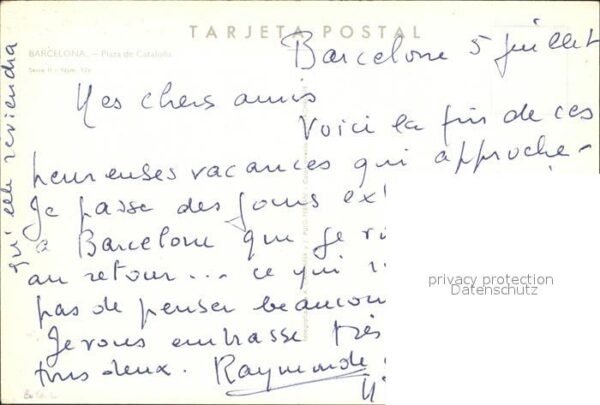 TARJETA POSTAL
BARCELONA. - Plaza de Cataluña
Barcelone 5 juillet
Mes chers amis
Voici la fin de ces
heureuses vacances qui approche -
Je passe des jours ex
à Barcelone que je
au retour... ce qui
pas de penser beaucou
Je vous embrasse très
tous deux. Raymonde
qu'elle reviendra
privacy protection
Datenschutz